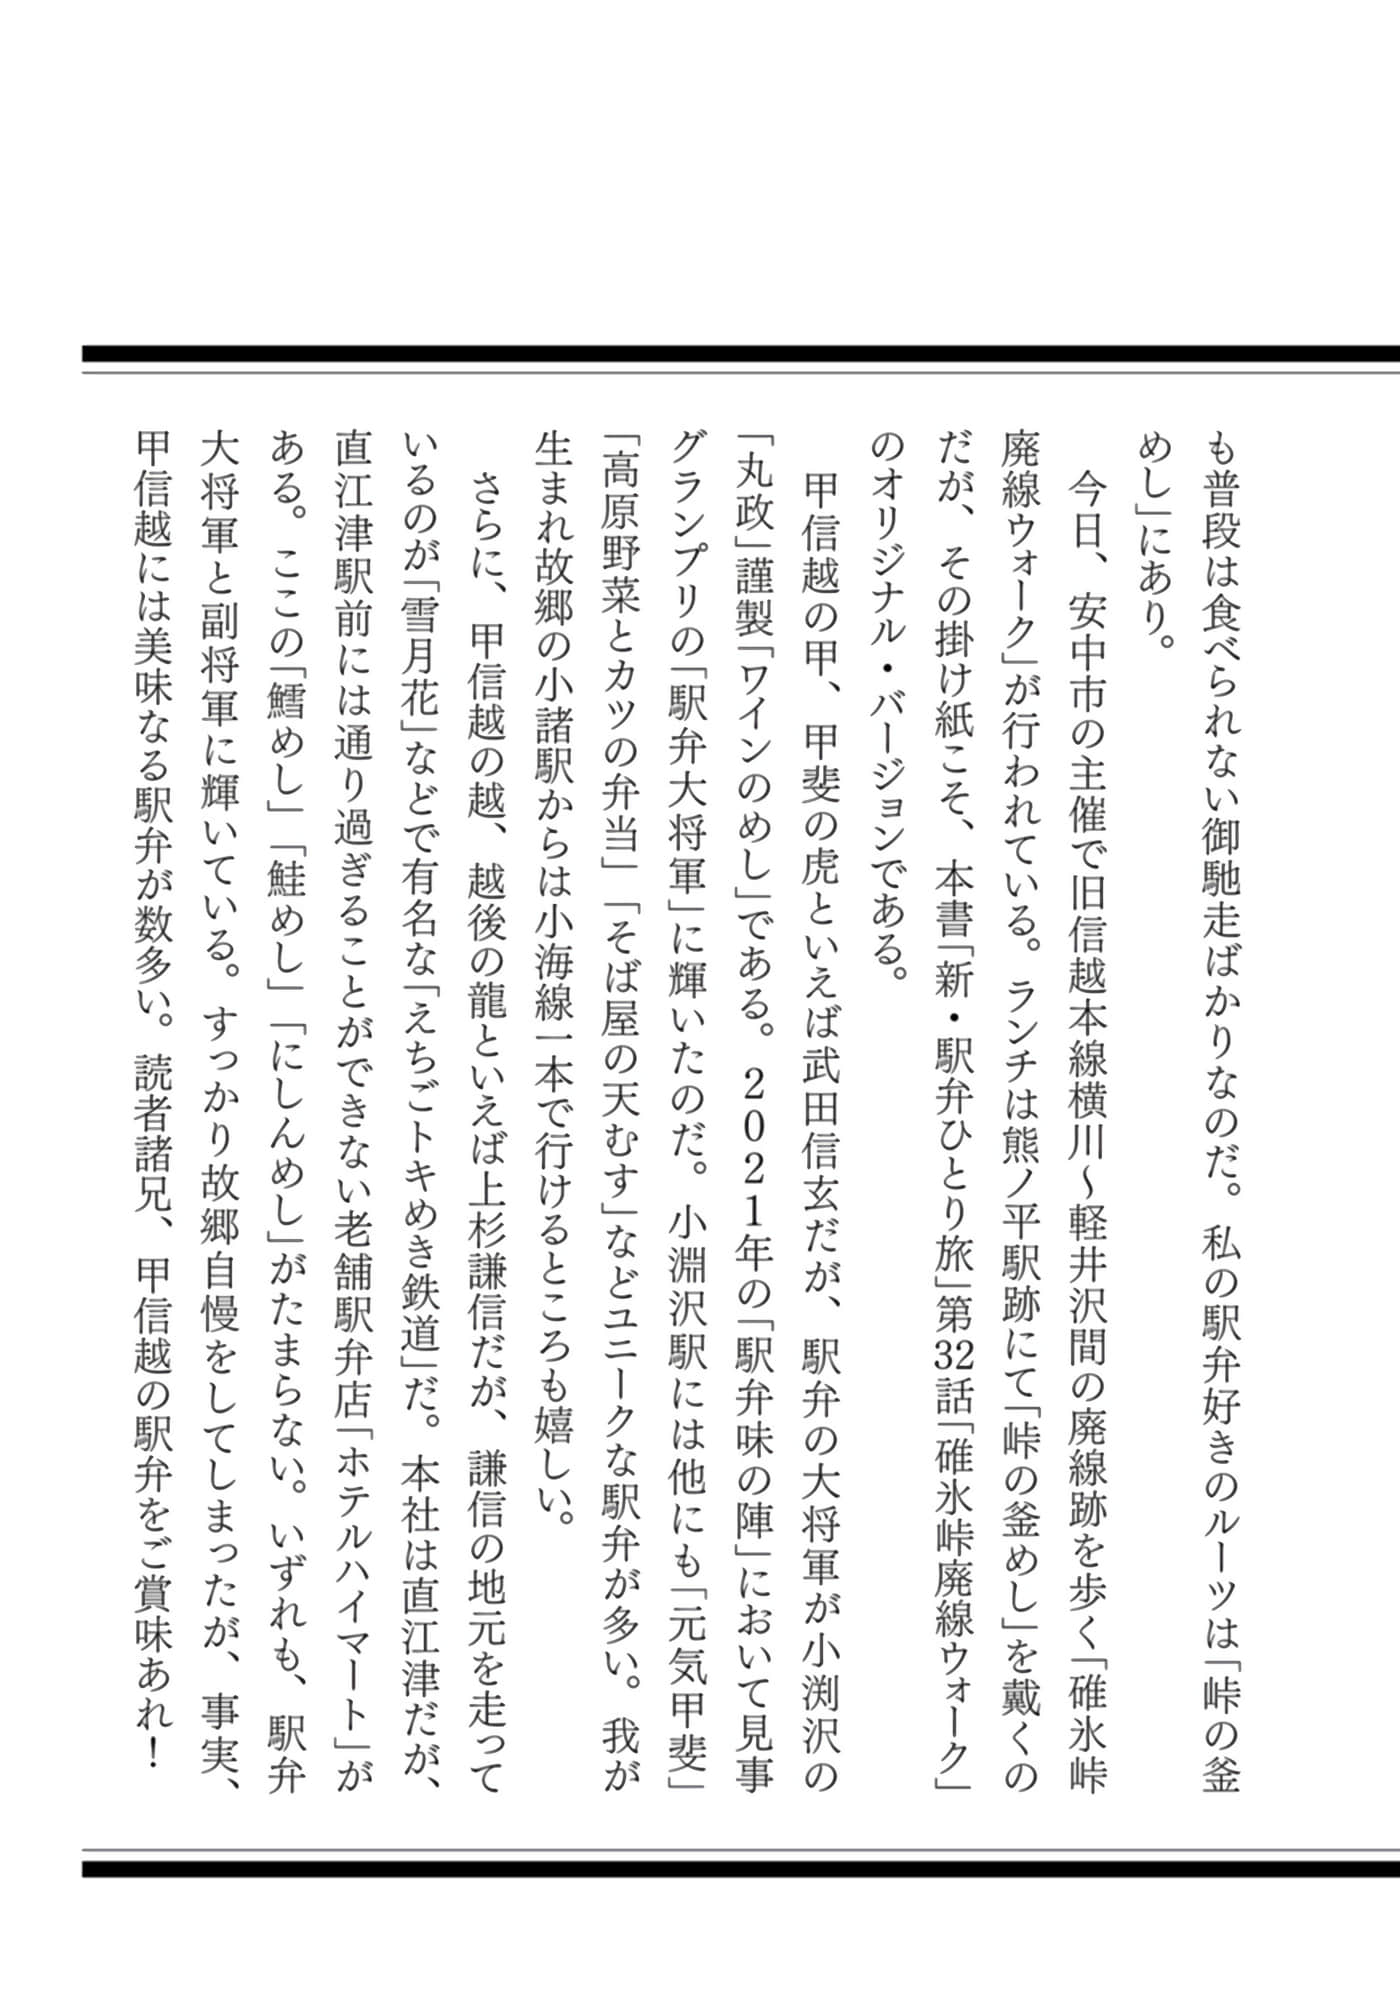 も普段は食べられない御馳走ばかりなのだ。私の駅弁好きのルーツは「峠の釜
めし」にあり。
　今日、安中市の主催で旧信越本線横川〜軽井沢間の廃線跡を歩く「碓氷峠
廃線ウォーク」が行われている。ランチは熊ノ平駅跡にて「峠の釜めし」を戴くの
だが、その掛け紙こそ、本書「新・駅弁ひとり旅」第32話「碓氷峠廃線ウォーク」
のオリジナル・バージョンである。
　甲信越の甲、甲斐の虎といえば武田信玄だが、駅弁の大将軍が小渕沢の
「丸政」謹製「ワインのめし」である。2021年の「駅弁味の陣」において見事
グランプリの「駅弁大将軍」に輝いたのだ。小淵沢駅には他にも「元気甲斐」
「高原野菜とカツの弁当」「そば屋の天むす」などユニークな駅弁が多い。我が
生まれ故郷の小諸駅からは小海線一本で行けるところも嬉しい。
　さらに、甲信越の越、越後の龍といえば上杉謙信だが、謙信の地元を走って
いるのが「雪月花」などで有名な「えちごトキめき鉄道」だ。本社は直江津だが、
直江津駅前には通り過ぎることができない老舗駅弁店「ホテルハイマート」が
ある。ここの「鱈めし」「鮭めし」「にしんめし」がたまらない。いずれも、駅弁
大将軍と副将軍に輝いている。すっかり故郷自慢をしてしまったが、事実、
甲信越には美味なる駅弁が数多い。読者諸兄、甲信越の駅弁をご賞味あれ！